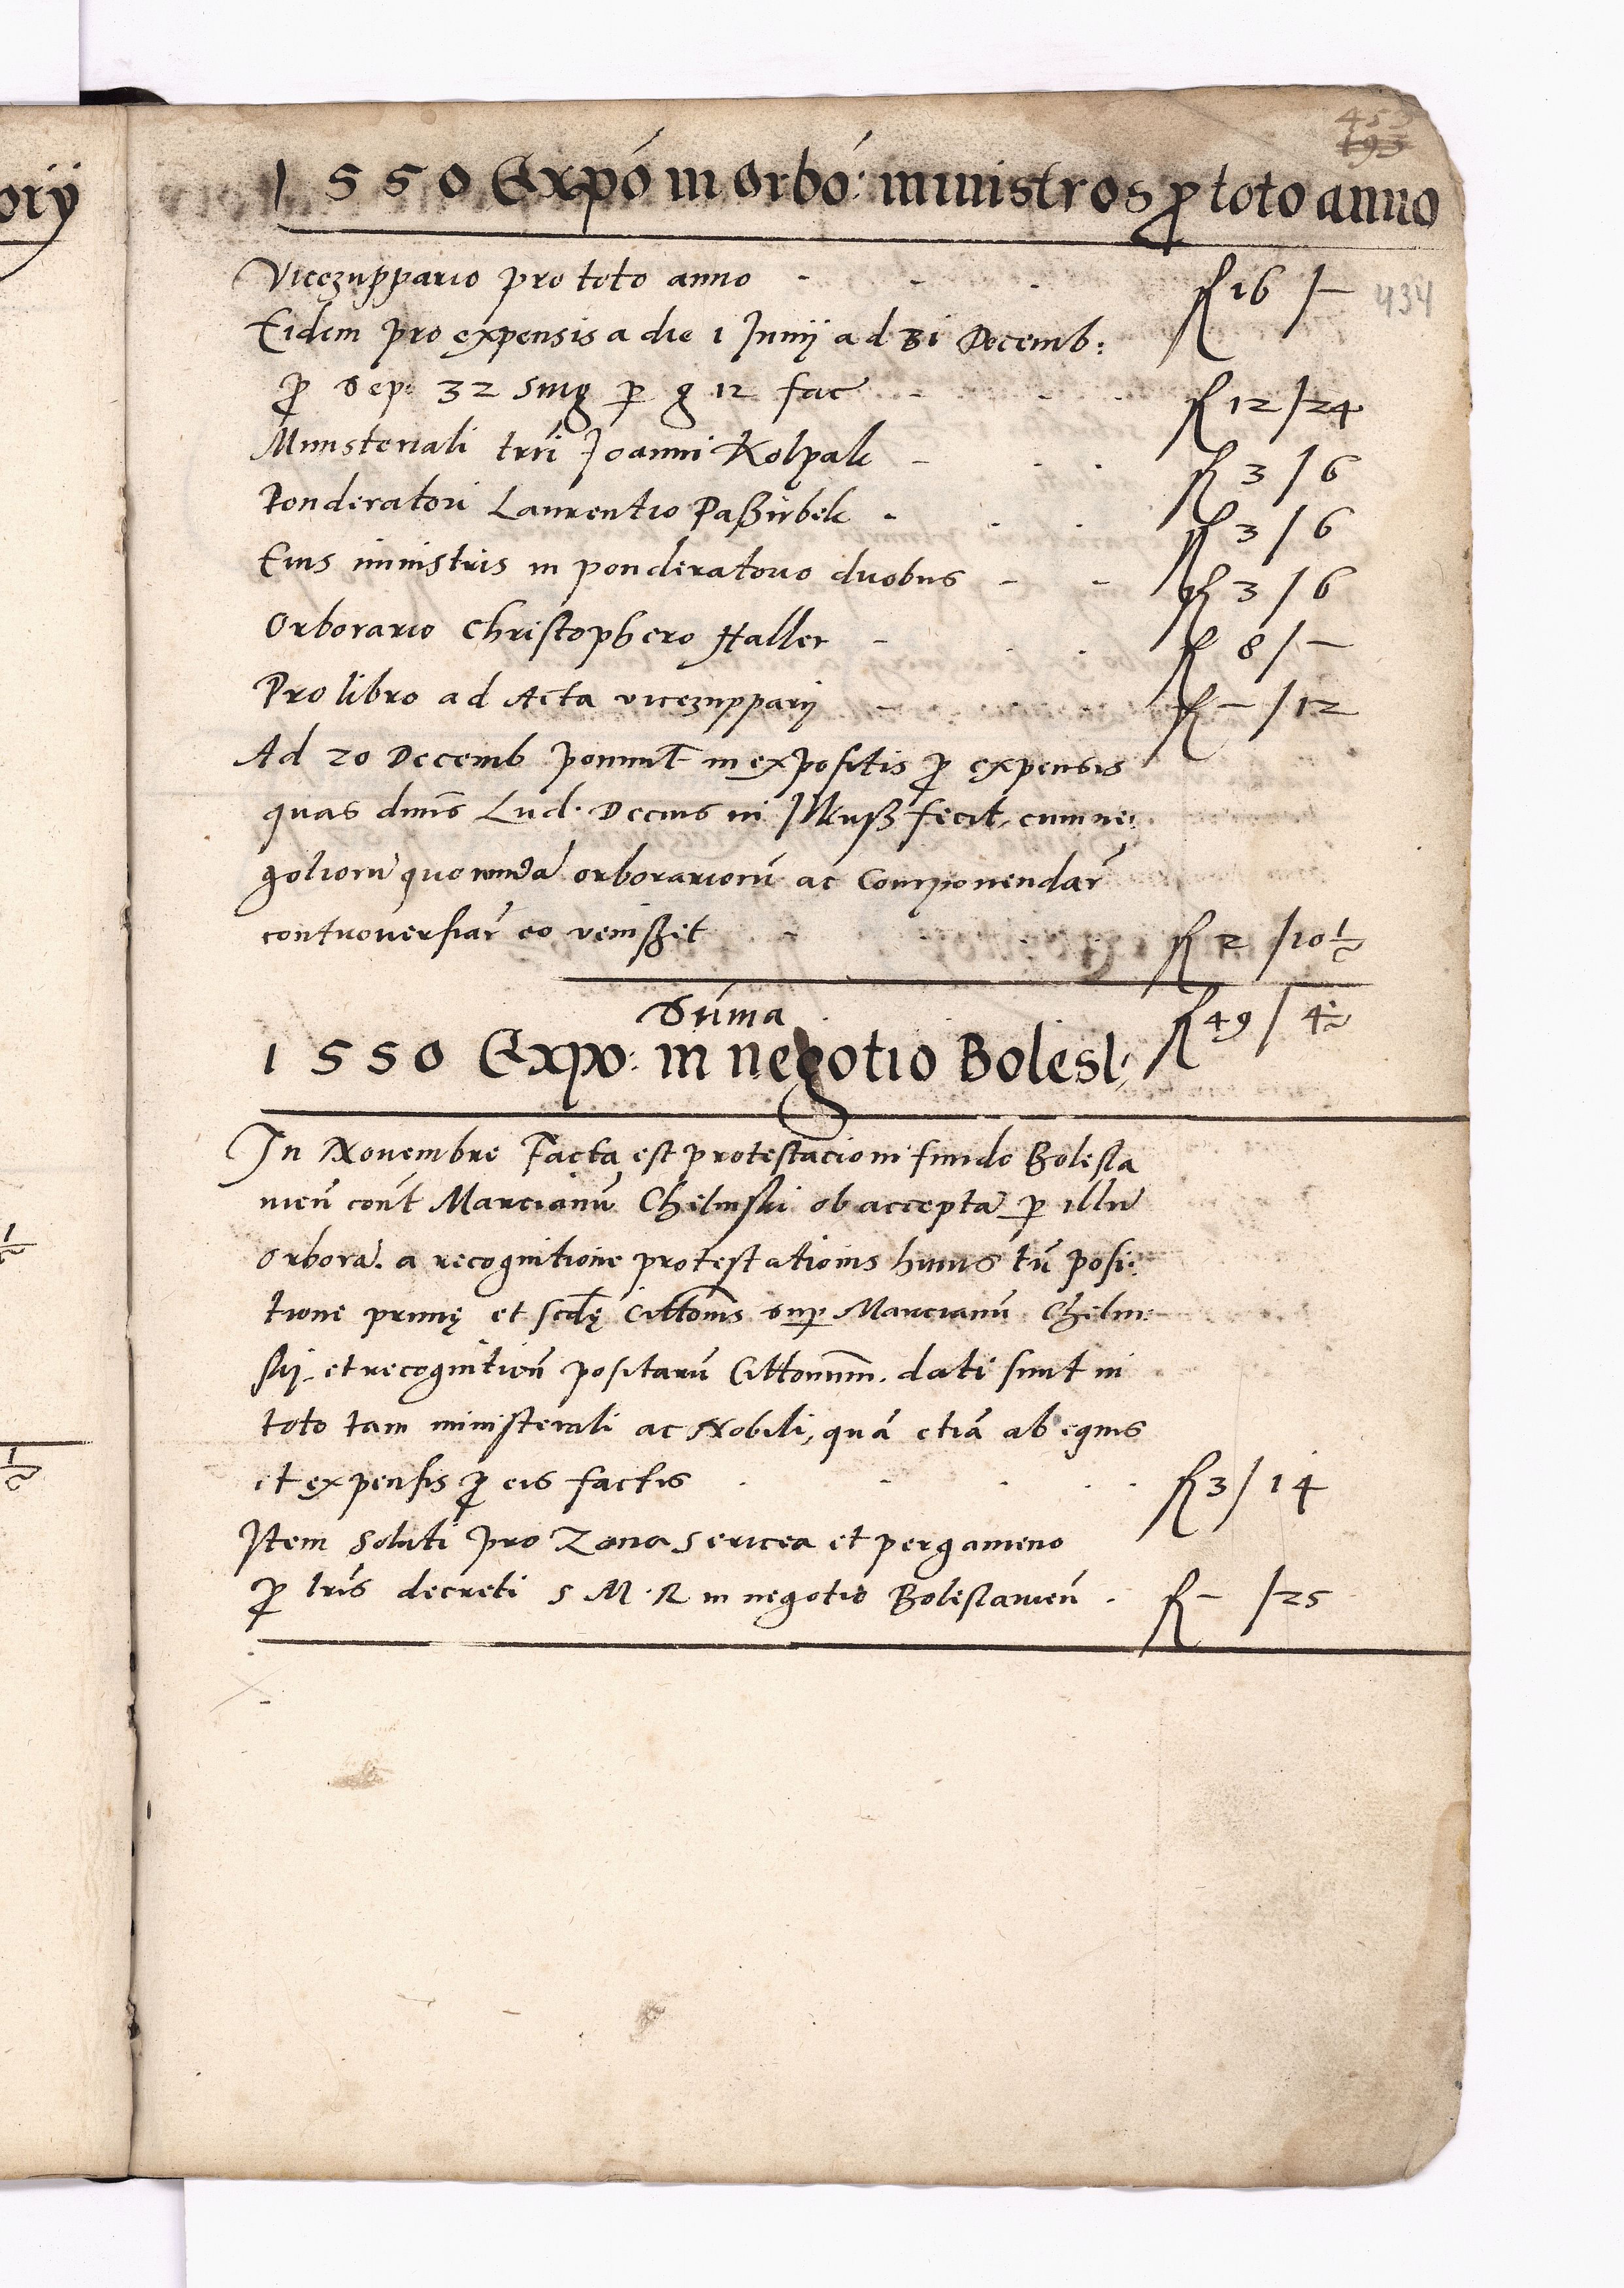 orij
453
493
1550 Expó in orbó: ministros ꝑ toto anno
Vicezuppario pro toto anno - - - ƒl 16 / —
434
Eidem pro expensis a die 1 Junij ad 31 Decemb:
ꝓ Sep: 32 sing ꝑ g 12 fac̃ - - - ƒl 12 / 24
Ministeriali trrĩ Joanni Kolpak - - - ƒl 3 / 6
Ponderatori Laurentio Paßirbek - - - ƒl 3 / 6
Eius ministris in ponderatorio duobus - - ƒl 3 / 6
Orborario Christophero Haller - - - ƒl 8 / —
Pro libro ad Acta vicezupparij - - - ƒl — / 12
Ad 20 Decemb ponunt̃ in expositis ꝓ expensis
quas dnũs Lud. Decius in Ilkuß fecit, cum ne:
gotiorũ quorundã orborariorũ ac Componendar̃
controversiar̃ eo venißet - - - ƒl 2 / 10 ½
Sũma ƒl 49 / 4 ½
1550 Expo: in negotio Bolesl:
In Novembre Facta est protestacio in fundo Bolesla
vien̄ cont̃ Marcianũ Chelmski ob acceptã ꝑ illũ
orborã. a recognitione protestationis huius tũ posi:
tione primę et scd̃ę Citt̃onis sup Marcianũ Chelm:
skij. et recognition̄ positarũ Citt̃onum̃. dati sunt in
toto tam ministeriali ac Nobili, quã etiã ab equis
et expensis ꝓ eis factis - - - ƒl 3 / 14
Item soluti pro Zona sericea et pergameno
ꝓ lrĩs decreti S M. R in negotio Boleslavien̄ . ƒl — / 25